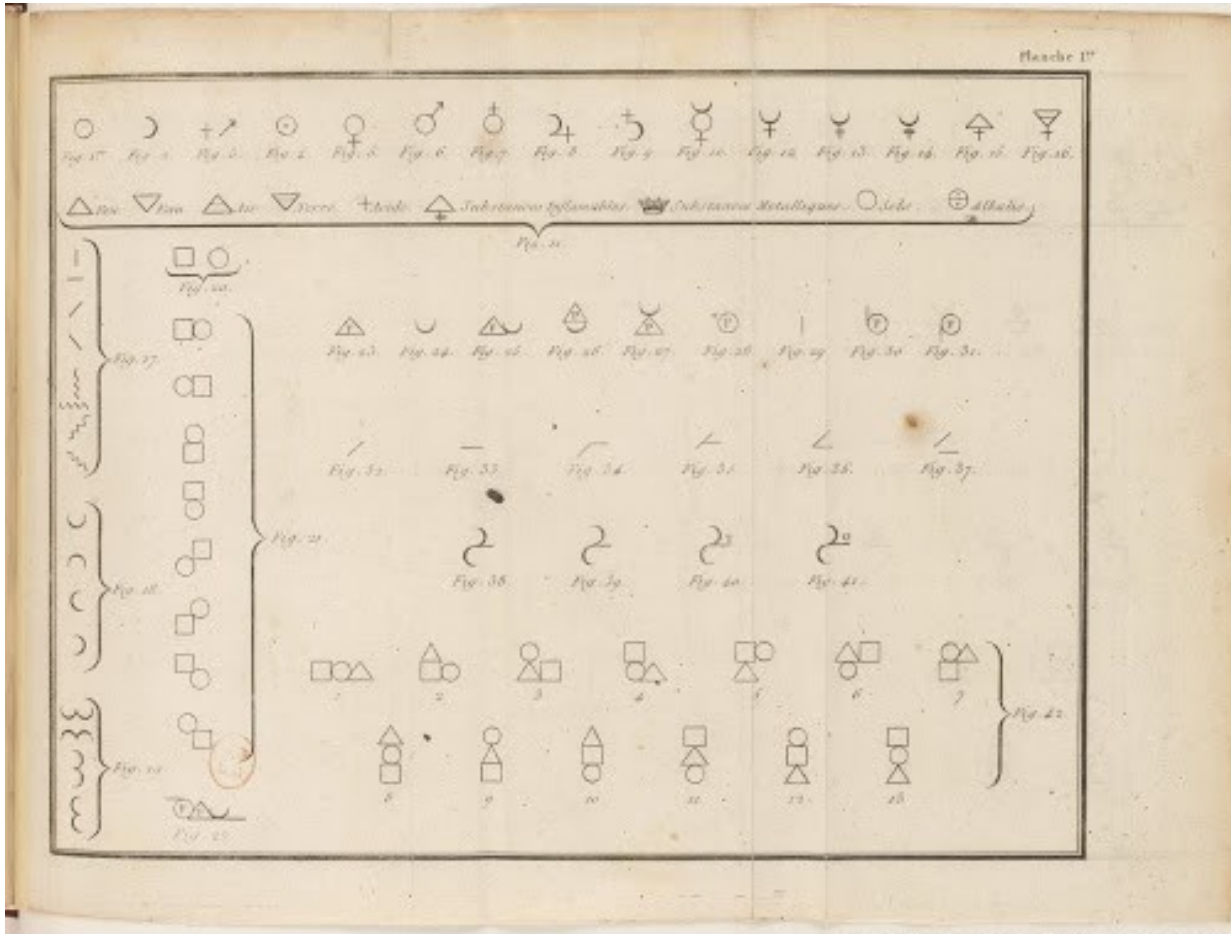 Planche 1re
Fig. 1re Fig. 2. Fig. 3. Fig. 4. Fig. 5. Fig. 6. Fig. 7. Fig. 8. Fig. 9. Fig. 10. Fig. 12. Fig. 13. Fig. 14. Fig. 15. Fig. 16.
Feu. Eau. Air. Terre. Acide. Substances Inflamables. Substances Metalliques. Sels. Alkalis.
Fig. 11.
Fig. 20.
Fig. 17.
Fig. 23. Fig. 24. Fig. 25. Fig. 26. Fig. 27. Fig. 28. Fig. 29. Fig. 30. Fig. 31.
Fig. 32. Fig. 33. Fig. 34. Fig. 35. Fig. 36. Fig. 37.
Fig. 21.
Fig. 38. Fig. 39. Fig. 40. Fig. 41.
Fig. 18.
1 2 3 4 5 6 7
Fig. 42.
Fig. 19.
8 9 10 11 12 13
Fig. 22.